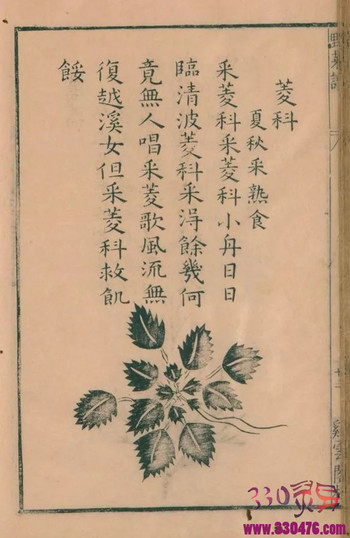 菱科
夏秋采熟食
采菱科采菱科小舟日日
臨清波菱科采淂餘幾何
竟無人唱采菱歌風流無
復越溪女但采菱科救飢
餒
330
www.330476.com